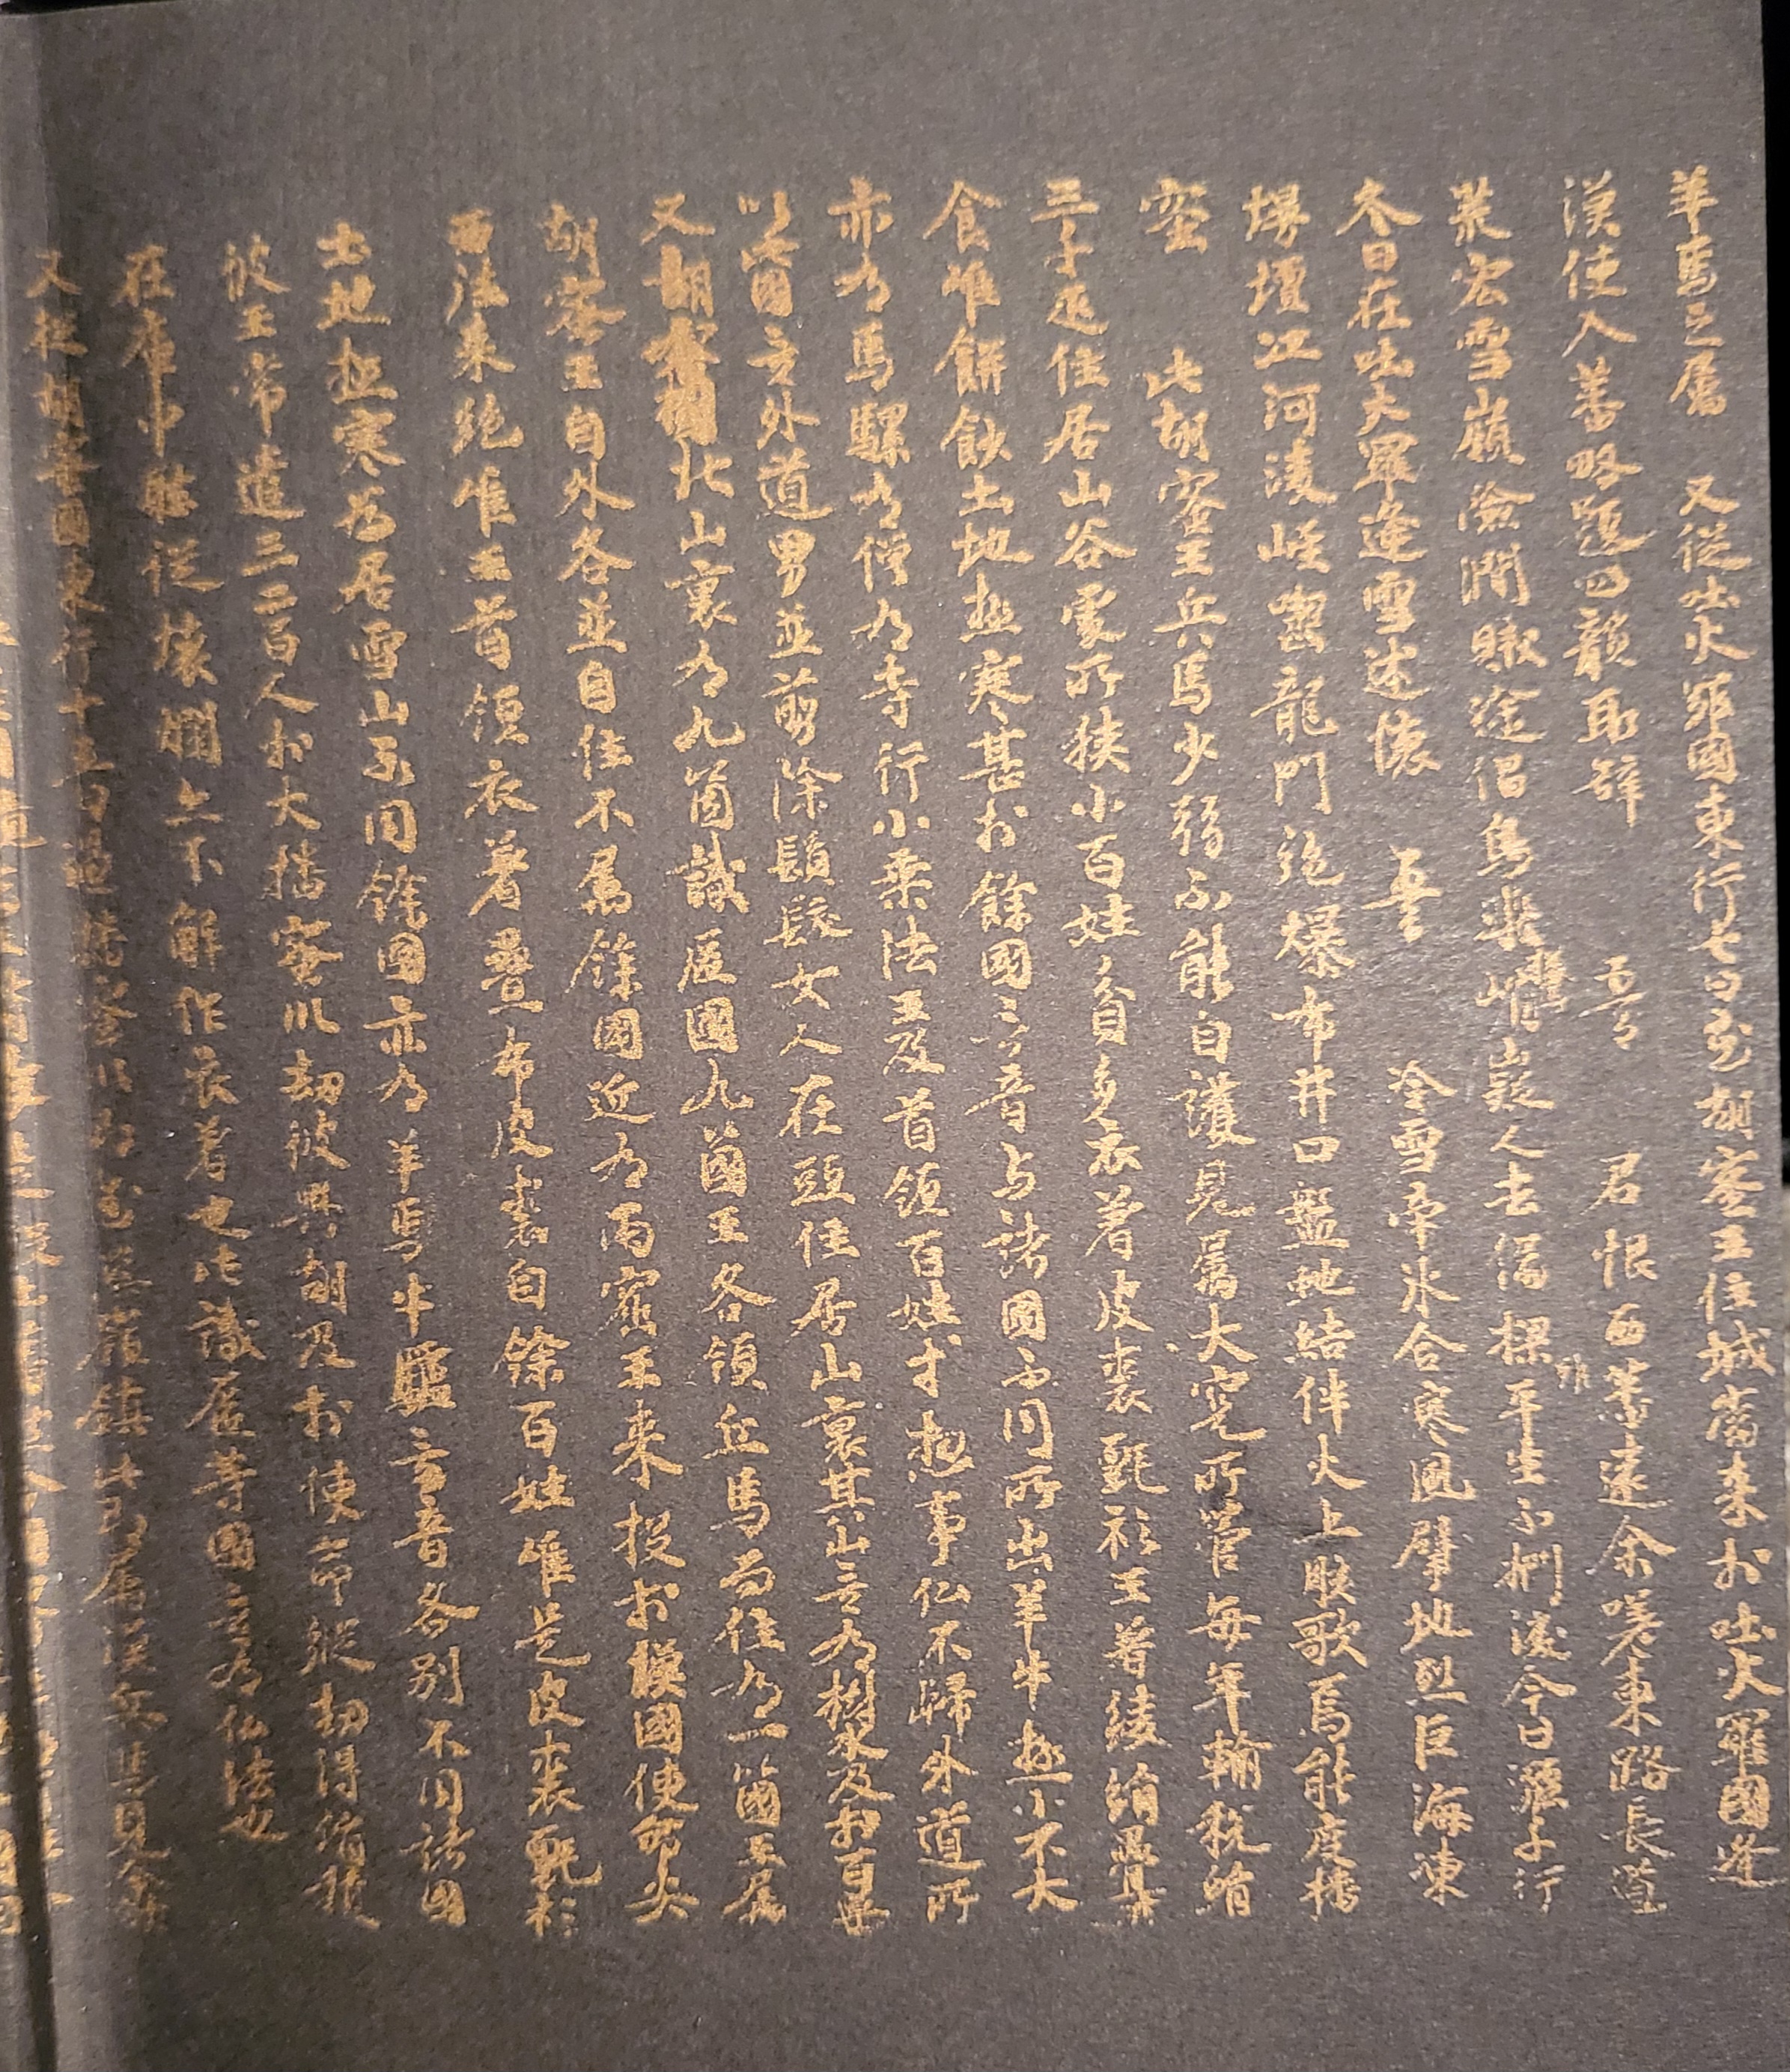 羊馬之属　又従吐火羅國東行七日至胡蜜王住城當来於吐火羅國逢
漢使入蕃略題四韻取辞　五言　君恨西蕃遠余嗟東路長道
荒宏雪嶺險澗賊途倡鳥飛驚峭嶷人去偏樑難平生不捫淚今日灑千行
冬日在吐火羅逢雪述懐　五言　冷雪牽氷合寒風擘地烈巨海凍
墁壇江河凌崖囓龍門絶爆布井口盤虵結伴火上胘歌焉能度播
蜜　此胡蜜王兵馬少弱不能自護見属大寔所管毎年輸税絹
三千疋住居山谷處所狭小百姓貧多衣着皮裘氈衫王著綾絹疊
食唯餅麨土地極寒甚於餘國言音与諸國不同所出羊牛極小不大
亦有馬騾有僧有寺行小乗法王及首領百姓才揔事仏不歸外道所
以此國無外道男並剪除鬚髮女人在頭住居山裏其山無有樹水及於百草
又胡蜜國北山裏有九箇識匿國九箇王各領兵馬而住有一箇王属
胡蜜王自外各並自住不属餘國近有兩窟王来投於漢國使命安
西往来絶唯王首領衣着疊布皮裘自餘百姓唯是皮裘氈衫
土地極寒為居雪山不同餘國亦有羊馬牛驢言音各別不同諸國
彼王常遣三二百人於大播蜜川劫彼興胡及於使命縱劫得絹積
在庫中聽從壊爛亦不解作衣着也此識匿等國無有仏法也
又従胡蜜國東行十五日過播蜜川即至葱嶺鎮此即属漢兵馬見今